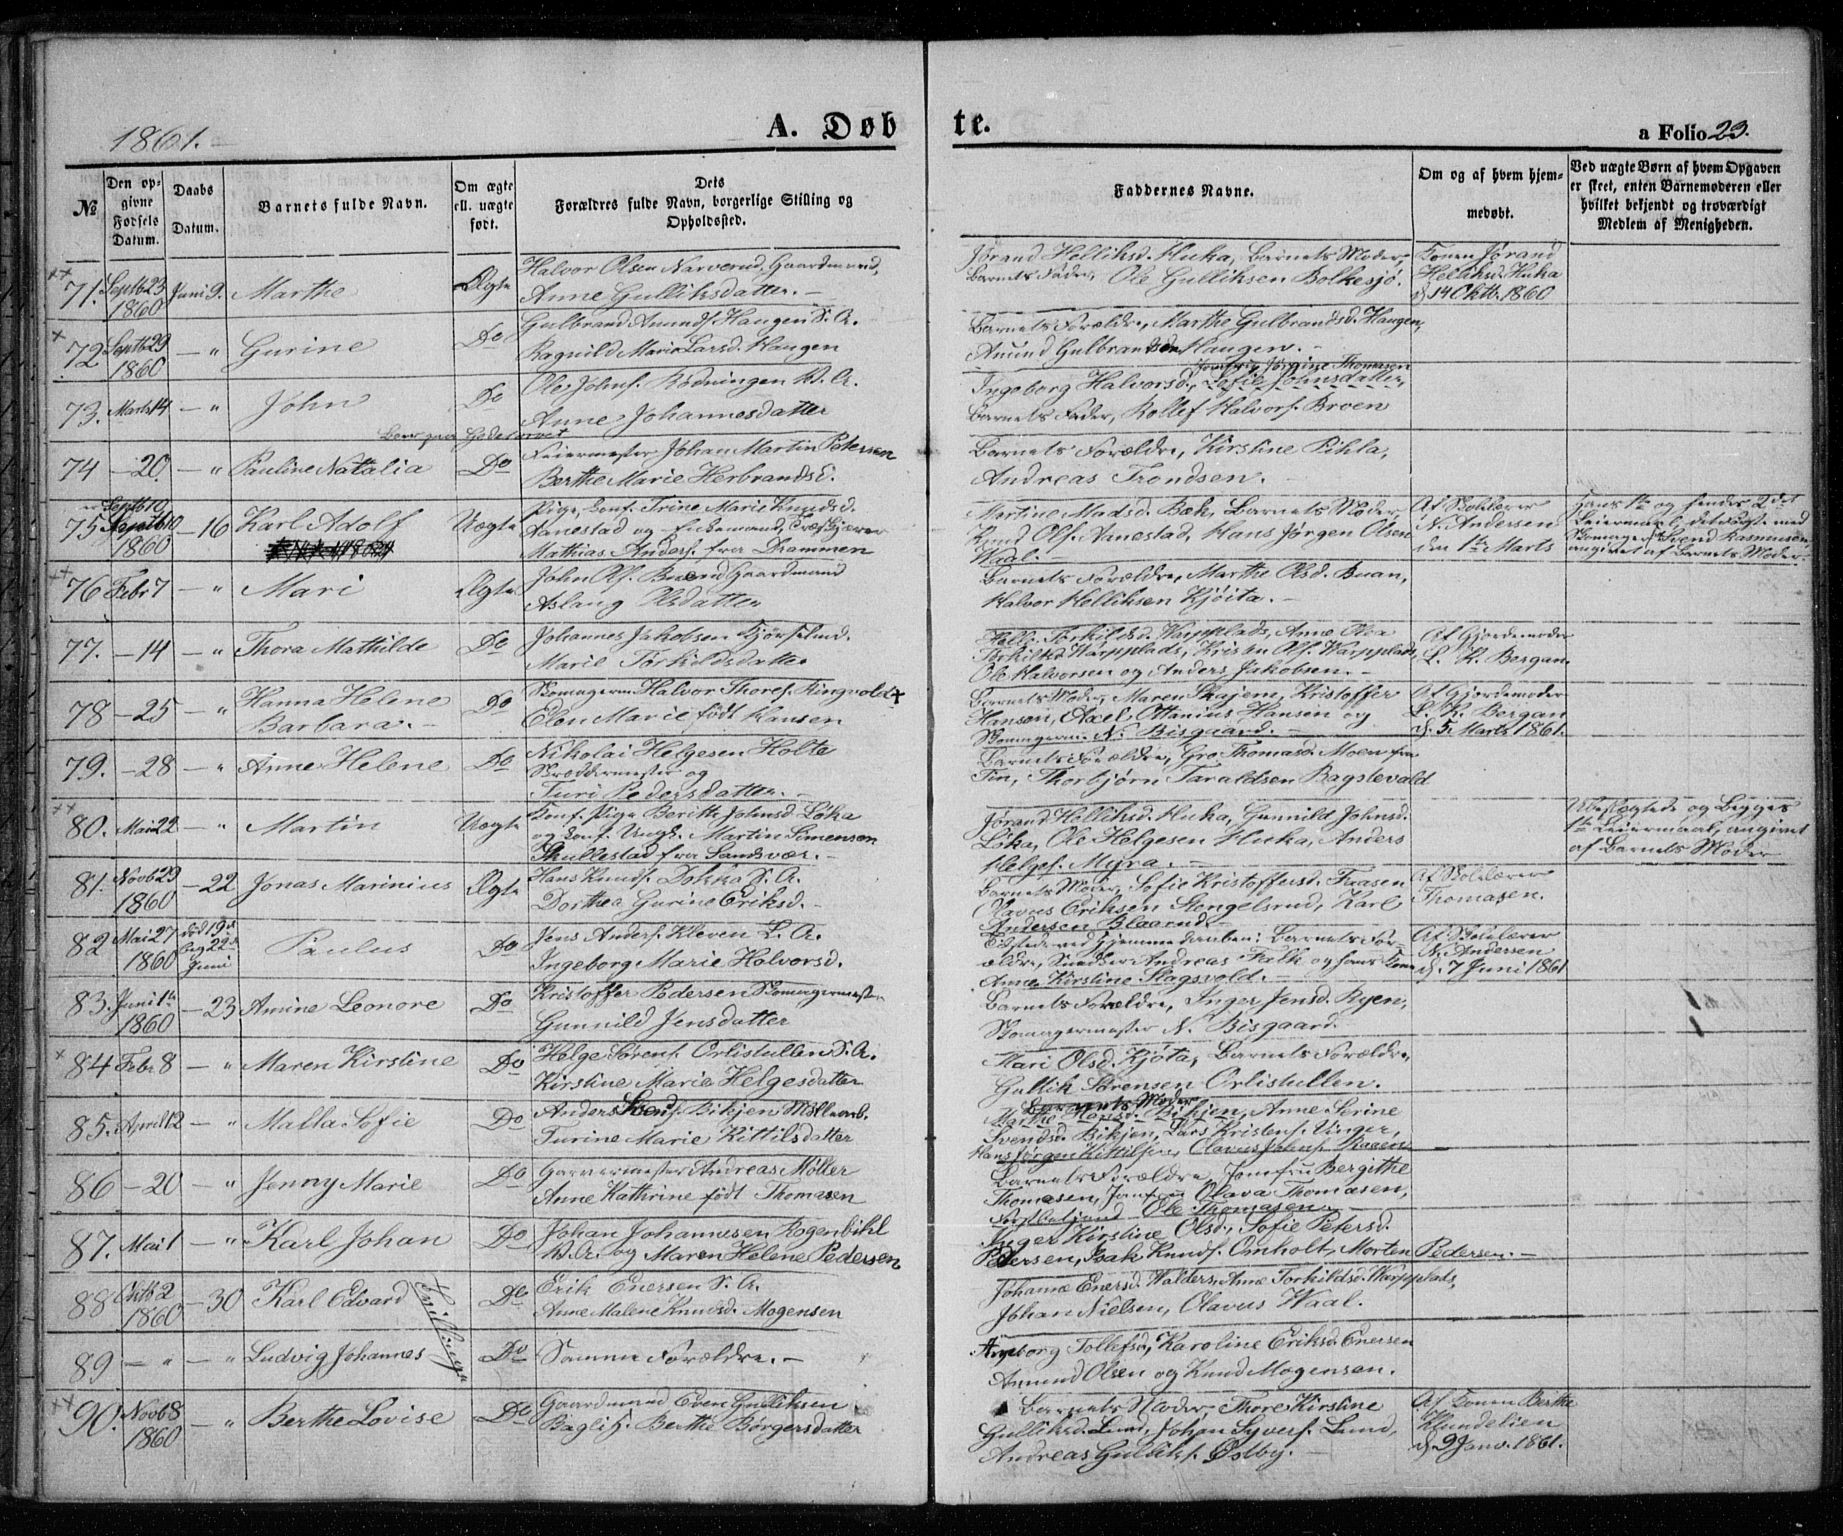 1861.
A. Døbte.
a Folio 23.
№
Den opgivne Fødsels Datum.
Daabs Datum.
Barnets fulde Navn.
Om ægte ell. uægte født.
Dets Forældres fulde Navn, borgerlige Stilling og Opholdssted.
Faddernes Navne.
Om og af hvem hjemmedøbt.
Ved uægte Børn af hvem Opgaven er skeet, enten Barnemoderen eller hvilket bekjendt og troværdigt Medlem af Menigheden.
71. Septb 23 1860 Juni 9. Marthe Ægte
Halvor Olsen Narverud, Gaardmand,
Anne Gulliksdatter. -
Jørand Helliksd. Huka, Barnets Moder,
Barnets Fader, Ole Gulliksen Bolkesjø.
Konen Jørand
Helliksd. Huka
d. 14 Oktb. 1860
72 Septb 29 1860 - " Gurine Do
Gulbrand Amunds. Haugen S. A.
Ragnild Marie Larsd. Haugen
Barnets Forældre, Marthe Gulbrandsd. Haugen,
Amund Gulbrandsen Haugen. -
73. Marts 14 - " John Do
Ole Johns. Rödningen B. A.
Anne Johannesdatter
Jomfru Jørgine Thomasen
Ingeborg Halvorsd., Sofie Johnsdatter,
Barnets Fader, Rollef Halvors. Broen
74 - 20. - " Pauline Natalia Do
Feiermester Johan Martin Petersen
Berthe Marie Herbrandsd.
Barnets Forældre, Kirstine Pihla,
Andreas Trondsen.
75 Septb 10 1860 - 16 Karl Adolf Uægte
Pige, Konf. Trine Marie Knudsd.
Aanestad og Enkemand,
Mathias Anders. fra Drammen
Martine Madsd. Bæk, Barnets Moder,
Knud Ols. Aanestad, Hans Jørgen Olsen
Waal.
Af Skolelærer
N. Andersen
den 1ste Marts
Hans 1ste og hendes 2det
Leiermaal, det første med
Skomager Svend Rasmusen,
angivet af Barnets Moder
76 Febr 7 - " Mari Ægte
John Ols. Buend Gaardmand
Aslaug Olsdatter
Barnets Forældre, Marthe Olsd. Buan,
Halvor Helliksen Kjöita. -
77. - 14 - " Thora Mathilde Do
Johannes Jakobsen
Marie Torkildsdatter
Torkildsd. Warpplads, Anne Olea
Torkildsd. Warpplads, Kristen Ols. Warpplads,
Ole Halvorsen og Anders Jakobsen. -
Af Gjordemoder
L. K. Bergan.
78 - 25 - " Hanna Helene Barbara. - Do
Skomagerm. Halvor Thores. Ringvold +
Elen Marie født Hansen
Barnets Moder, Maren Skajem, Kristoffer
Hansen, Axel Ottanius Hansen og
Skomagerm. N. Bisgaard. -
Af Gjordemoder
L. K. Bergan
d. 5. Marts 1861.
79. - 28 - " Anne Helene Do
Nikolai Helgesen Holte
Skræddermester og
Turi Pedersdatter. -
Barnets Forældre, Gro Thomasd. Moen fra
Tin, Thorbjørn Taraldsen Bagstevold
80. Mai 22 - " Martin Uægte
Konf. Pige Berith Johnsd. Løka
og Konf. Ungk. Martin Simensen
Skullestad fra Sandsvær. -
Jørand Helliksd. Huka, Gunnild Johnsd.
Løka, Ole Helgesen Huka, Anders
Helges. Myra. -
Ubeslægtede og Begges
1ste Leiermaal, angivet
af Barnets Moder
81. Novb 29 1860 - 22 Jonas Marinius Ægte
Hans Knuds. Dokka S. A.
Dorthea Gurine Eriksd. -
Barnets Moder, Sofie Kristoffersd. Faasen
Olavus Eriksen Stengelsrud, Karl
Andersen Blaarud. -
Af Skolelærer
Thomasen.
82 Mai 27 1860 død 19d begr. 22d Juni Paulus Do
Jens Anders. Kleven L. A.
Ingeborg Marie Halvorsd.
Tilstede ved Hjemmedaaben: Barnets Forældre,
Snedker Andreas Falk og hans Kone
Anne Kirstine Slagsvold. -
Af Skolelærer
N. Andersen
d. 7 Juni 1861
83. Juni 1ste 1860 - 23 Amine Leonore Do
Kristoffer Pedersen Skomagermester
Gunnild Jensdatter
Barnets Forældre, Inger Jensd. Ryen,
Skomagermester N. Bisgaard.
84 Febr 8 - " Maren Kirstine Do
Helge Sørens. Orlistullen S. A.
Kirstine Marie Helgesdatter
Mari Olsd. Kjøta, Barnets Forældre,
Gullik Sørensen Orlistullen.
85. April 12 - " Malla Sofie Do
Anders Svends. Bikjen Møllearb.
Turine Marie Kittilsdatter
Barnets Moder
Marthe Hansd. Bikjen, Anne Serine
Svendsd. Bikjen, Lars Kristens. Unger,
Hans Jørgen Kittilsen, Olavus
86 - 20 - " Jenny Marie Do
Garvermester Andreas Møller
Anne Kathrine født Thomasen
Barnets Forældre, Jomfru Bergithe
Thomasen, Jomfru Olava Thomasen,
Ole Thomasen.
87. Mai 1 - " Karl Johan Do
Johan Johannesen Rogenbihl
B. A. og Maren Helene Pedersen
Inger Kirstine Olsd., Sofie Petersd.
Pedersen, Isak Knuds. Omholt, Morten Pedersen. -
88 Oktb 2 1860 - 30 Karl Edvard Do
Tvillinger
Erik Enersen S. A.
Anne Malene Knudsd. Mogensen
Johanne Enersd. Walders, Anne Torkildsd. Warpplads,
Johan Nielsen, Olavus Waal.
89 - " - " Ludvig Johannes Do
Samme Forældre. -
Ingeborg Tollefsd., Karoline Eriksd. Enersen
Amund Olsen og Knud Mogensen.
90. Novb 8 1860 - " Berthe Lovise Do
Gaardmand Even Gulliksen
Baglig. Berthe Børgersdatter
Barnets Moder, Thore Kirstine
Gulliksd. Lund, Johan Syvers. Lund,
Andreas Gulliks. Østby. -
Af Konen Berthe
Klundelien
d. 9 Janv. 1861.